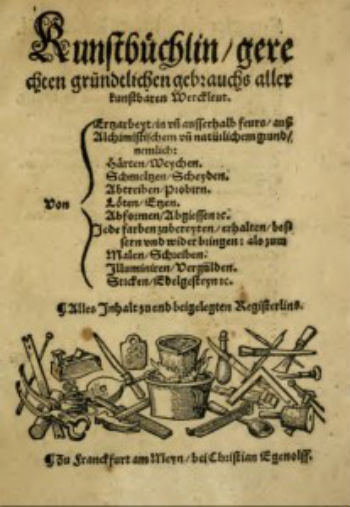 Kunstbüchlin/gere
chten gründtlichen gebrauchs aller
kunstbaren Werckleut.
Ertzarbeyt/in vñ ausserhalb feurs/auß
Alchimistischem vñ natürlichem grund/
nemlich:
Härten/Weychen.
Schmeltzen/Scheyden.
Abtreiben/Probirn.
Von
Löten/Etzen.
Abformen/Abgiessen ꝛc.
Jede farben zubereyten/erhalten/bess
sern vnd widerbringen: als zum
Malen/Schreiben.
Illuminiren/Vergülden.
Sticken/Edelgesteyn ꝛc.
¶Alles Inhalt zu end beigelegten Registerlins.
¶Zu Franckfurt am Meyn/bei Christian Egenolff.